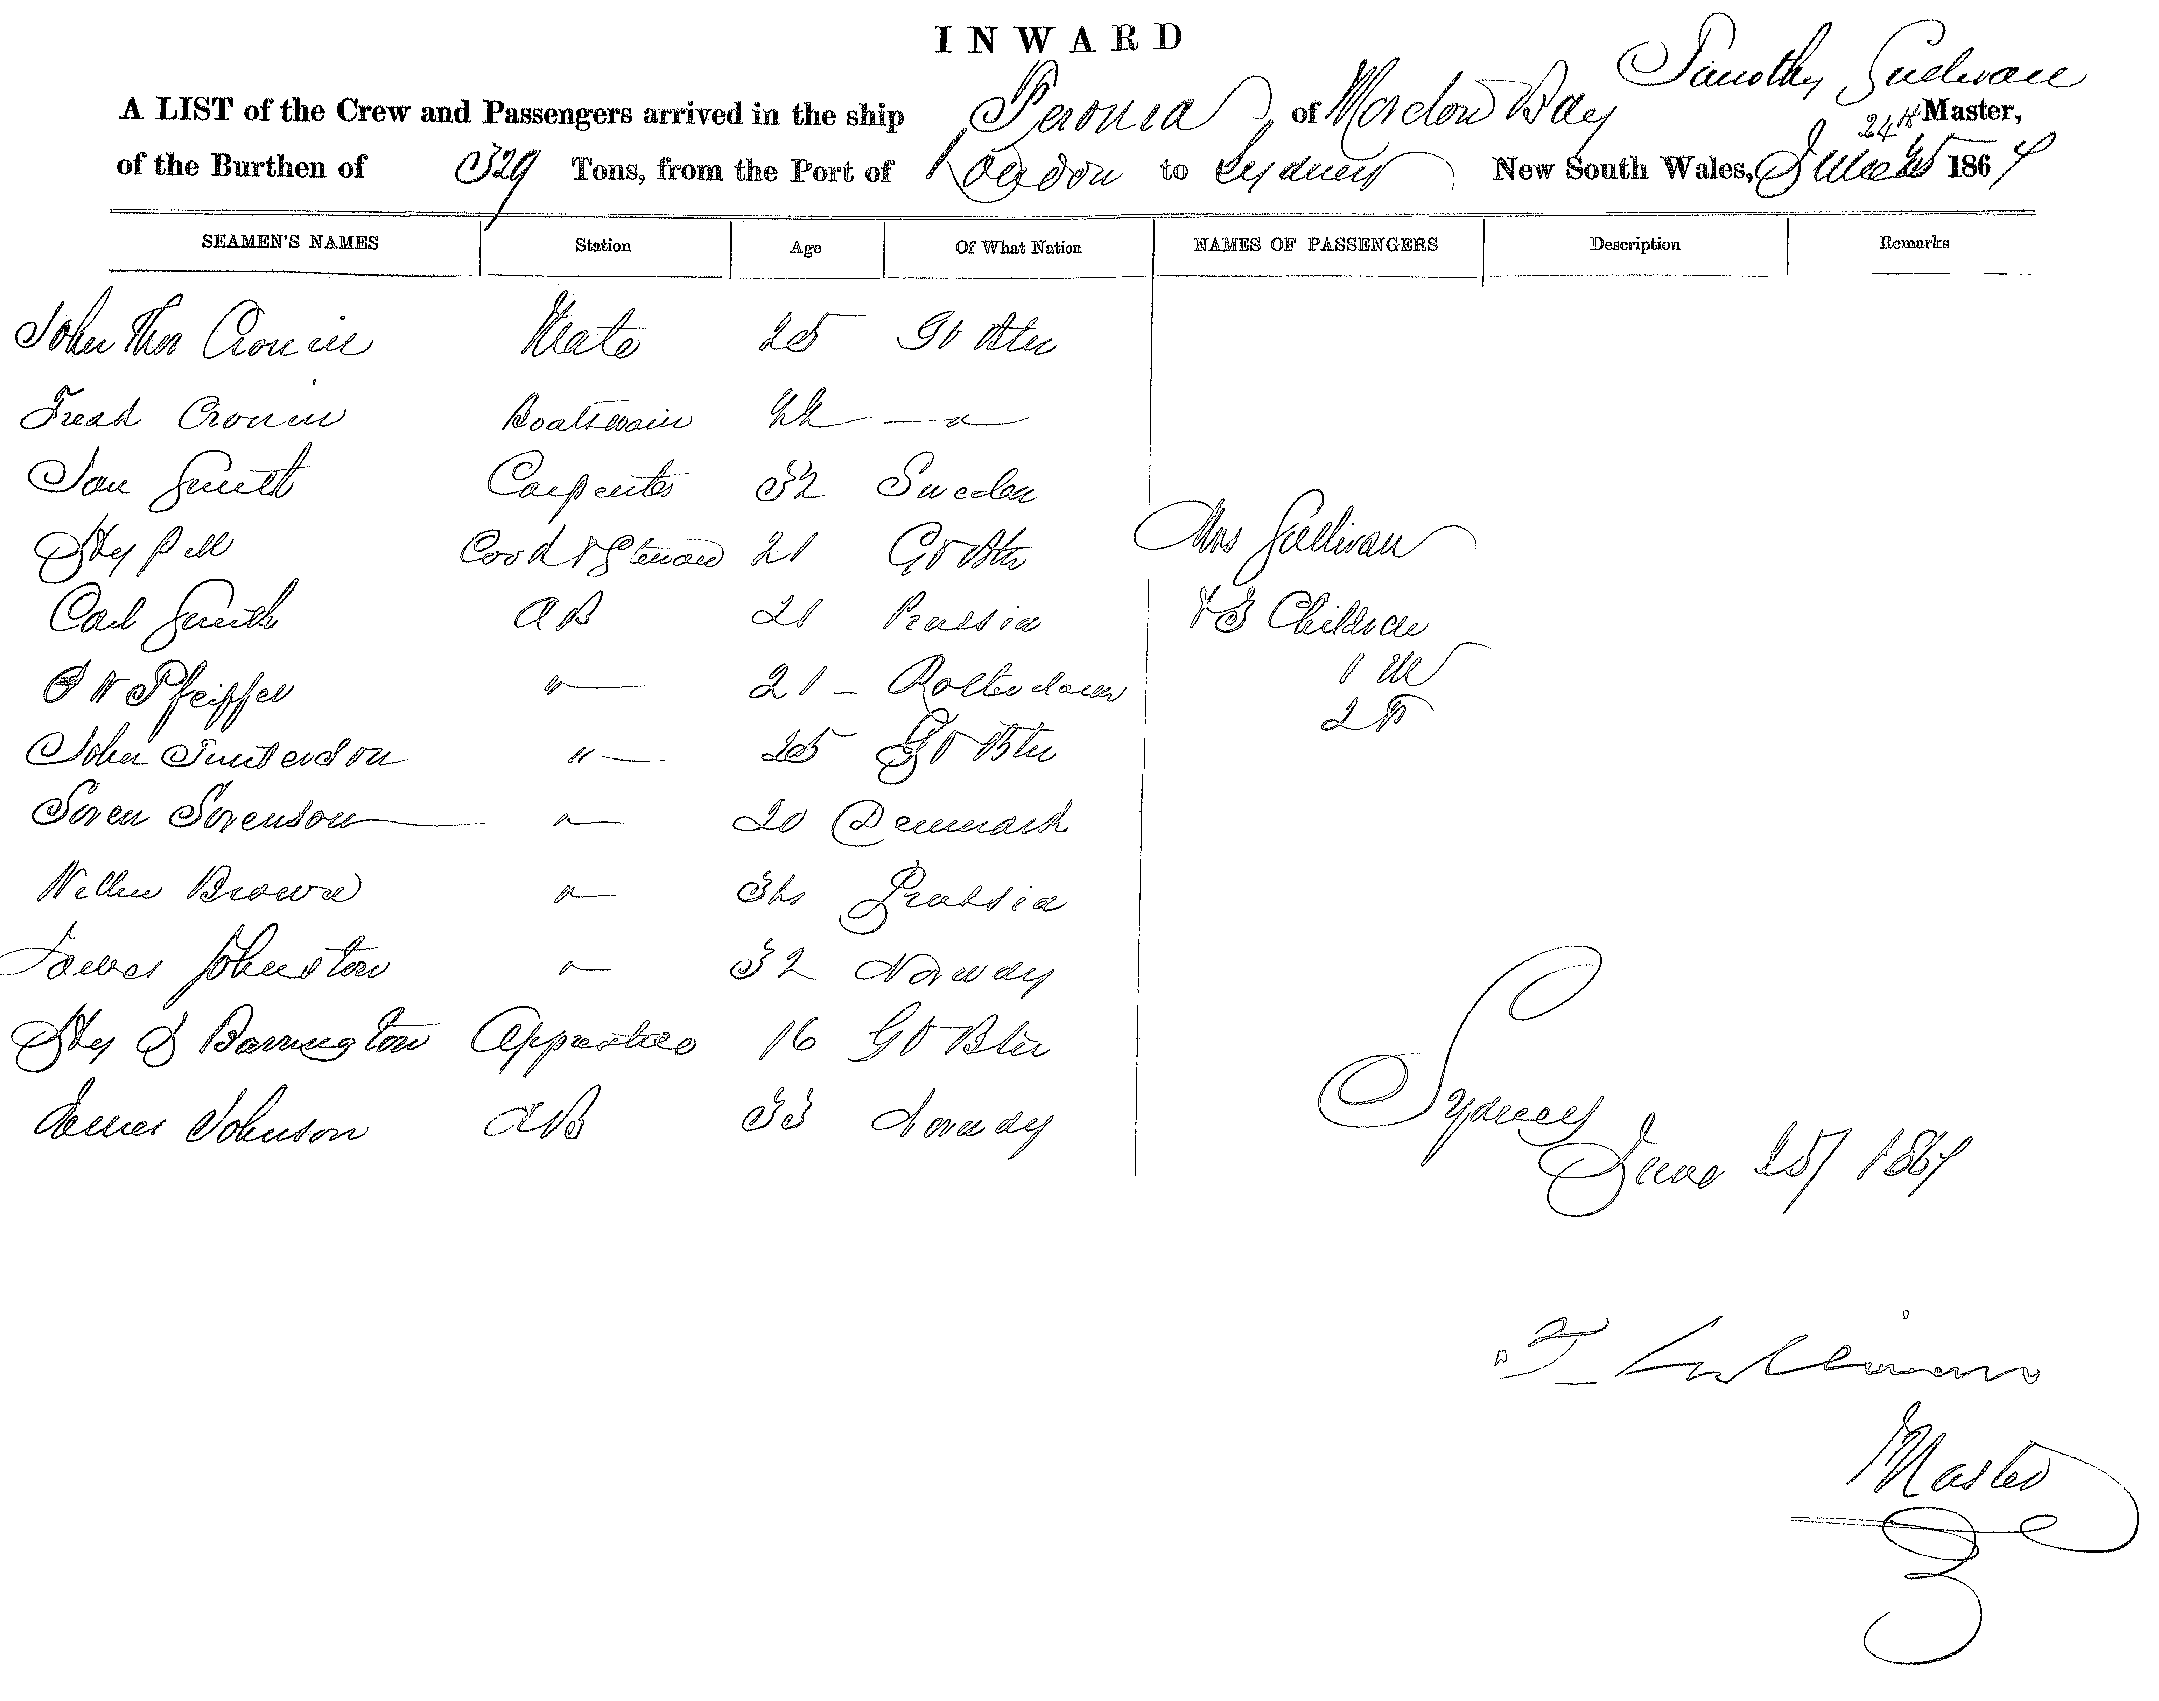 INWARD
A LIST of the Crew and Passengers arrived in the ship Peronia of Mordon Bay Timothy Sullivan Master,
of the Burthen of 329 Tons, from the Port of London to Sydney New South Wales, 24th June 1864
SEAMEN'S NAMES Station Age Of What Nation NAMES OF PASSENGERS Description Remarks
John Thos Cronin Mate 25 Gt Btn
Fred Cronin Boatswain — " —
Jan Smith Carpenter 32 Sweden
Hy Pill Cook & Steward 21 Gt Btn Mrs Sullivan
Carl Smith AB 21 Prussia & 3 Children
W Pfeiffer " — 21 — Rotterdam 1 M
2 F
John " — 25 Gt Btn
Soren Sorenson " — 20 Denmark
Brown " — Prussia
James Johnston " — 32 Norway
Hy J Barrington Apprentice 16 Gt Btn
James Johnson AB 33 Norway
Sydney
June 25/1864
T Sullivan
Master